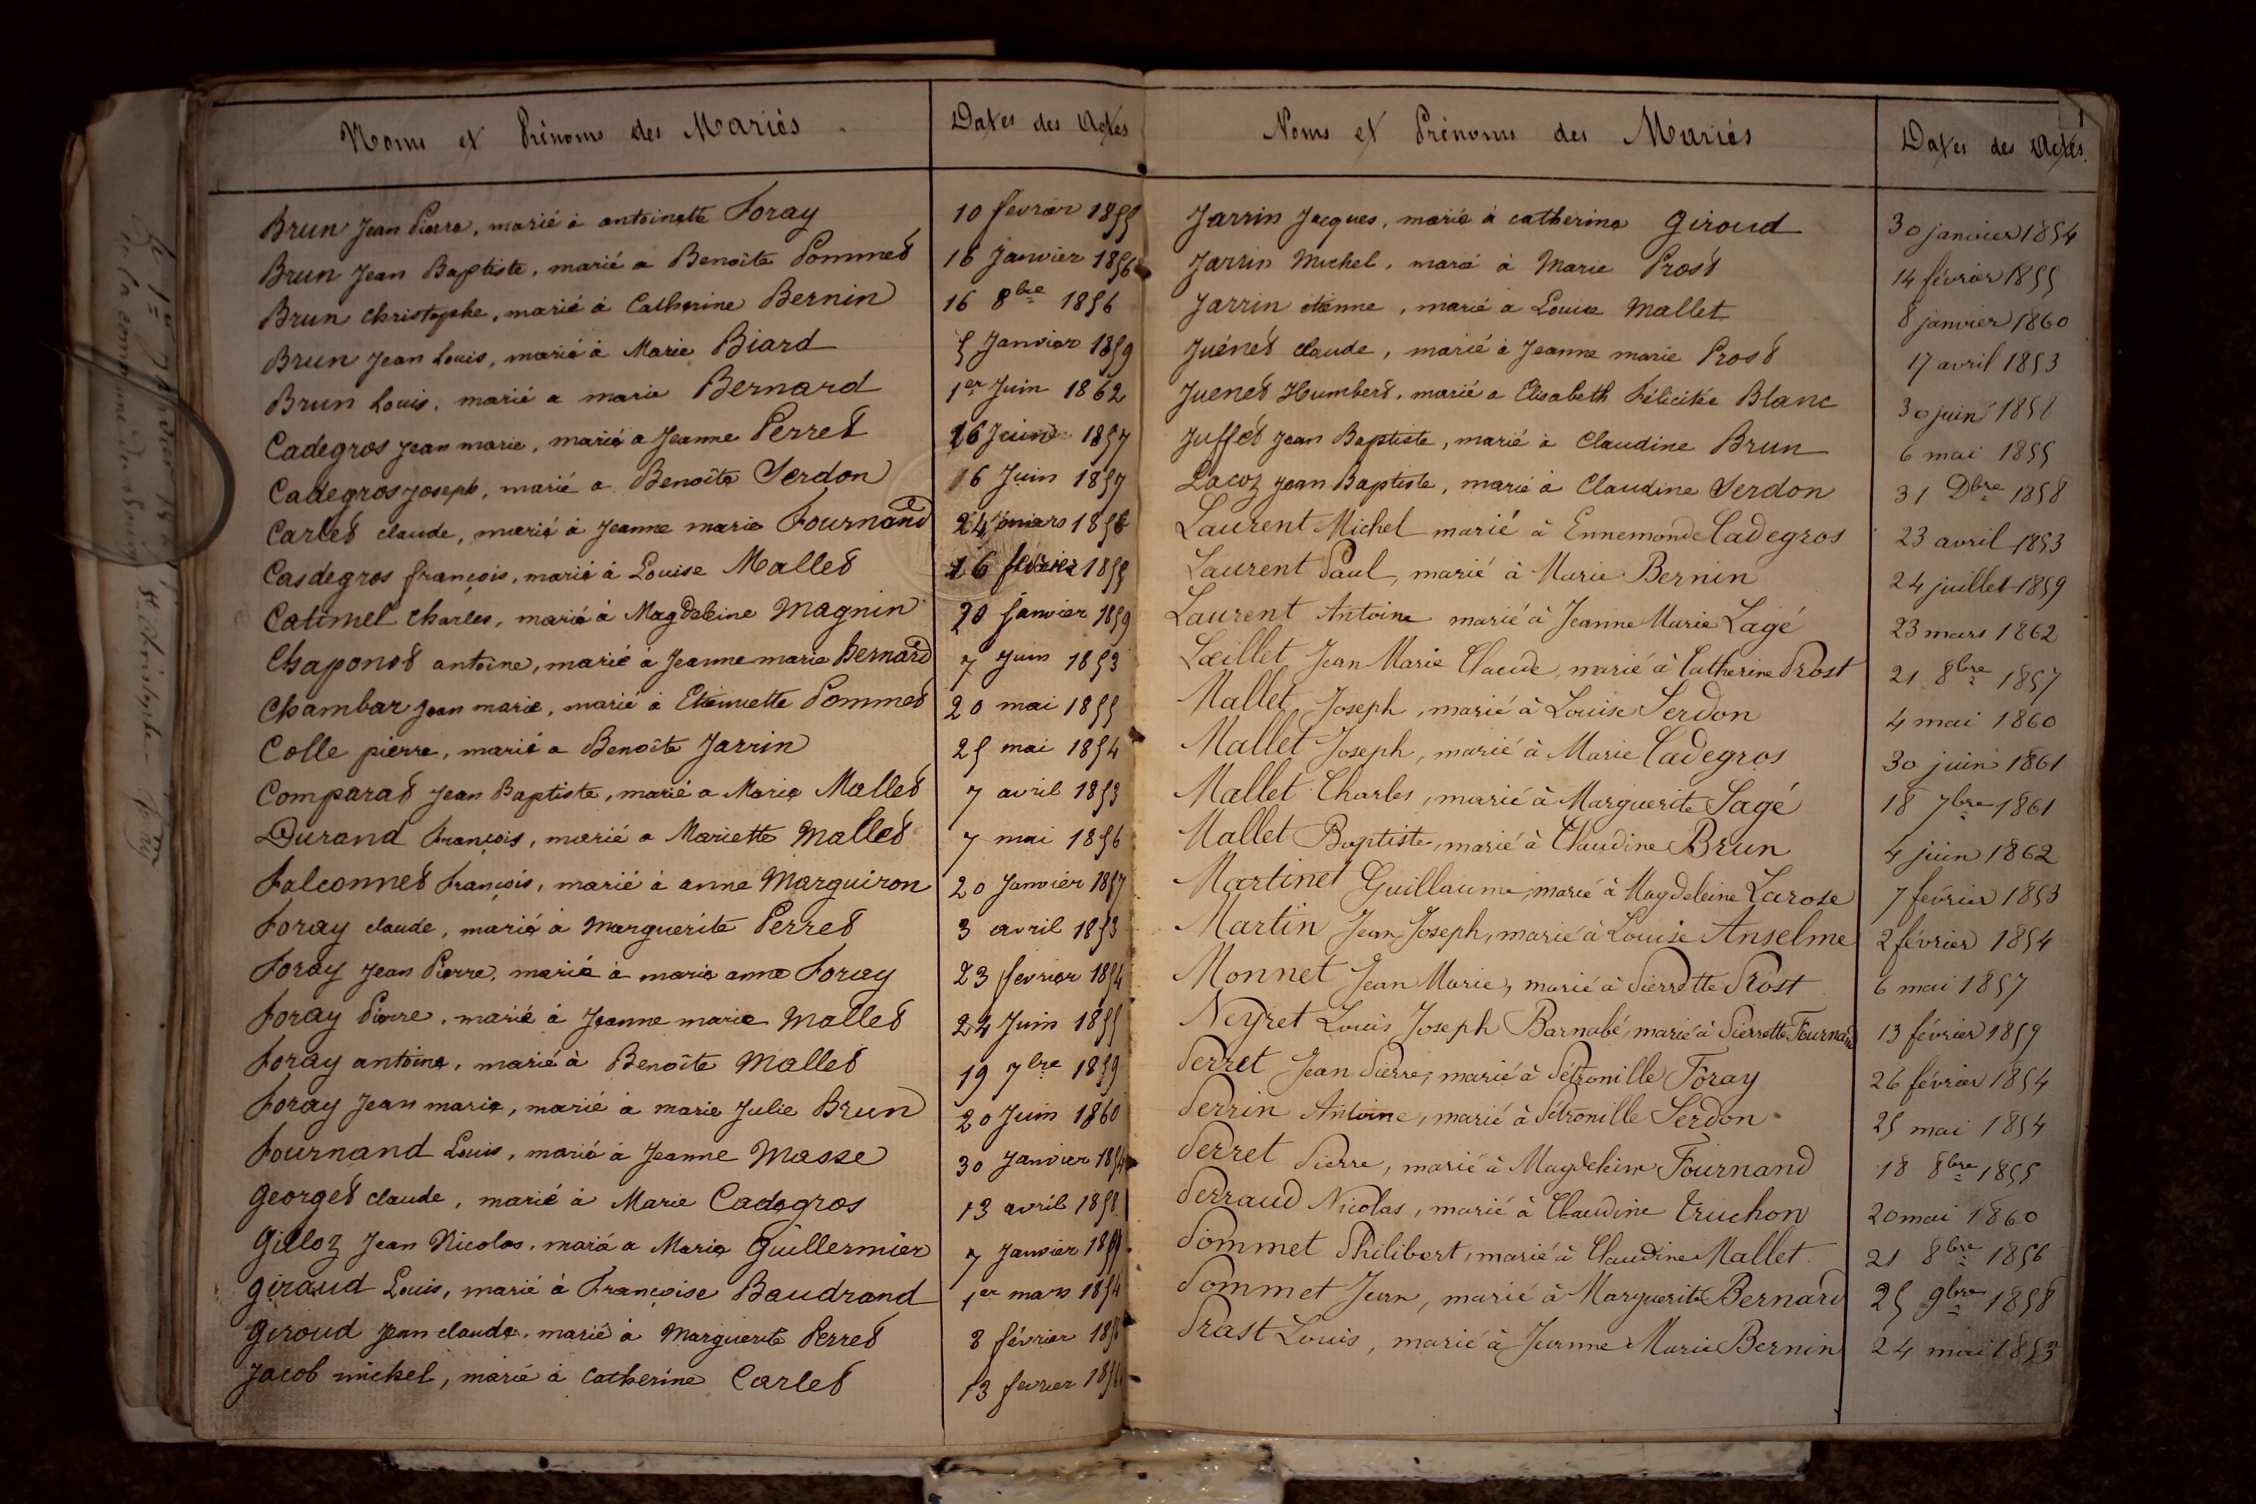 Noms et Prénoms des Mariés
Dates des Actes
Brun Jean Pierre, marié à antoinette Foray 10 fevrier 1855
Brun Jean Baptiste, marié a Benoîte Pommet 16 Janvier 1856
Brun christophe, marié à Catherine Bernin 16 8bre 1856
Brun Jean Louis, marié à Marie Biard 5 Janvier 1859
Brun Louis, marié a marie Bernard 1er Juin 1862
Cadegros Jean marie, marié a Jeanne Perret 16 Juin 1857
Cadegros Joseph, marié a Benoîte Serdon 16 Juin 1857
Carlet claude, marié à Jeanne marie Fournand 24 mars 1856
Casdegros françois, marié à Louise Mallet 16 février 1855
Catimel charles, marié à Magdeleine Magnin 20 Janvier 1859
Chaponot antoine, marié à Jeanne marie Bernard 7 Juin 1853
Chambar Jean marie, marié à Etiennette Pommet 20 mai 1855
Colle pierre, marié a Benoîte Jarrin 25 mai 1854
Comparat Jean Baptiste, marié a Marie Mallet 7 avril 1853
Durand François, marié a Mariette Mallet 7 mai 1856
Falconnet François, marié à anne Marguiron 20 Janvier 1857
Foray claude, marié à Marguerite Perret 3 avril 1853
Foray Jean Pierre, marié à marie anne Foray 23 fevrier 1854
Foray Pierre, marié à Jeanne marie Mallet 24 Juin 1855
Foray antoine, marié à Benoîte Mallet 19 7bre 1859
Foray Jean marie, marié à marie Julie Brun 20 Juin 1860
Fournand Louis, marié à Jeanne Masse 30 Janvier 1854
Georget claude, marié à Marie Cadegros 13 avril 1858
Gilloz Jean Nicolas, marié a Marie Guillermier 7 Janvier 1859
Giraud Louis, marié à Françoise Baudrand 1er mars 1854
Giroud Jean claude, marié à Marguerite Perret 8 février
Jacob michel, marié à Catherine Carlet 13 fevrier
Noms et Prénoms des Mariés
Dates des Actes
Jarrin Jacques, marié à catherine Giroud 30 janvier 1854
Jarrin Michel, marié à Marie Prost 14 février 1855
Jarrin etienne, marié a Louise Mallet 8 janvier 1860
Juénet claude, marié à Jeanne marie Prost 17 avril 1853
Juenet Humbert, marié a Elisabeth Félicitée Blanc 30 juin 1858
Juffet Jean Baptiste, marié à Claudine Brun 6 mai 1855
Lacoz Jean Baptiste, marié à Claudine Serdon 31 Dbre 1858
Laurent Michel marié à Ennemonde Cadegros 23 avril 1853
Laurent Paul, marié à Marie Bernin 24 juillet 1859
Laurent Antoine marié à Jeanne Marie Lagé 23 mars 1862
Lœillet Jean Marie Claude, marié à Catherine Prost 21 8bre 1857
Mallet Joseph, marié à Louise Serdon 4 mai 1860
Mallet Joseph, marié à Marie Cadegros 30 juin 1861
Mallet Charles, marié à Marguerite Sagé 18 7bre 1861
Mallet Baptiste, marié à Claudine Brun 4 juin 1862
Martinet Guillaume, marié à Magdeleine Larose 7 février 1853
Martin Jean Joseph, marié à Louise Anselme 2 février 1854
Monnet Jean Marie, marié à Pierrette Prost 6 mai 1857
Neyret Louis Joseph Barnabé, marié à Pierrette Fournand 13 février 1859
Perret Jean Pierre, marié à Pétronille Foray 26 février 1854
Perrin Antoine, marié à Pétronille Serdon 25 mai 1854
Perret Pierre, marié à Magdeleine Fournand 18 8bre 1855
Perraud Nicolas, marié à Claudine Truchon 20 mai 1860
Pommet Philibert, marié à Claudine Mallet 21 8bre 1856
Pommet Jean, marié à Marguerite Bernard 25 9bre 1858
Prast Louis, marié à Jeanne Marie Bernin 24 mai 1853